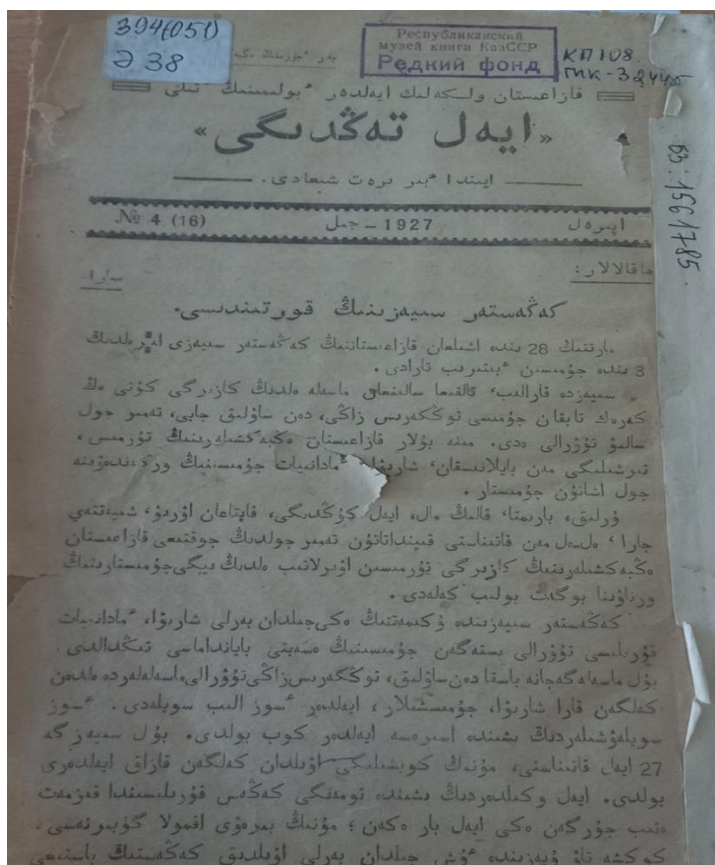 394(051)
Ә 38
Республиканский
музей книги КазССР
Редкий фонд
КП 108
ГИК-32445
бз. 1561785.
قازاعىستان ولكەلىك ايەلدەر ٴبولىمىنىڭ ٴتىلى
«ايەل تەڭدىگى»
ايىندا ٴبىر رەت شىعادى.
№ 4 (16)
1927 – جىل
اپىرەل
ماقالالار:
سارا.
كەڭەستەر سىيەزىنىڭ قورتىندىسى.
مارتتىڭ 28 ىندە اشىلعان قازاعىستاننىڭ كەڭەستەر سىيەزى اپىرەلدىڭ
3 ىندە جۇمىسىن ٴبىتىرىپ تارادى.
سىيەزدە قارالىپ، قالقىعا سالىنعان ماسەلەلەردىڭ كازىرگى كۇنى ەڭ
كەرەك تابقان جۇمىسى توڭكەرىس زاڭى، دەن ساۋلىق جايى، تەمىر جول
سالىۋ تۇۋرالى ەدى. مىنە بۇلار قازاعىستان ەڭبەكشىلەرىنىڭ تۇرمىس،
تىرشىلىگى مەن بايلانىسقان، شارىۋا، ٴمادانىيات جۇمىسىنىڭ وركەندەۋىنە
جول اشاتۇن جۇمىستار.
ۇرلىق، بارىمتا، قالىڭ مال، ايەل كۇڭدىگى، قاپتاعان اۋرىۋ،
قاتىناستى قىينداتاتۇن تەمىر جولدىڭ جوقتىعى قازاعىستان
ەڭبەكشىلەرىنىڭ كازىرگى تۇرمىسىن اۋىرلاتىپ ەلدىڭ جۇمىستارىنىڭ
ورناۋىنا بوگەت بولىپ كەلەدى.
كەڭەستەر سىيەزىندە ۇكىمەتتىڭ ەكى جىلدان بەرلى شارىۋا، ٴمادانىيات
قۇرىلىسى تۇۋرالى ىستەگەن جۇمىسىنىڭ ەسەبتى بايانداماسى تىڭدالدى.
بۇل ماسەلەگە جانە باسقا دەن ساۋلىق، توڭكەرىس زاڭى تۇۋرالى ماسەلەلەردە ەلدەن
كەلگەن قارا شارىۋا، جۇمىسشىلار، ايەلدەر ٴسوز الىپ سويلەدى. ٴسوز
سويلەۋشىلەردىڭ ىشىندە اسىرەسە ايەلدەر كوب بولدى. بۇل سىيەزگە
27 ايەل قاتىناستى، مۇنىڭ كوبشىلىگى اۋىلدان كەلگەن قازاق ايەلدەرى
بولدى. ايەل وكىلدەردىڭ ىشىندە تومەنگى كەڭەس قۇرىلىسىندا قىزمەت
ەتىپ جۇرگەن ەكى ايەل بار ەكەن؛ مۇنىڭ بىرەۋى اقمولا گۇبىرنەسى،
ٴۇش جىلدان بەرلى اۋىلدىق كەڭەستىڭ باستىعى